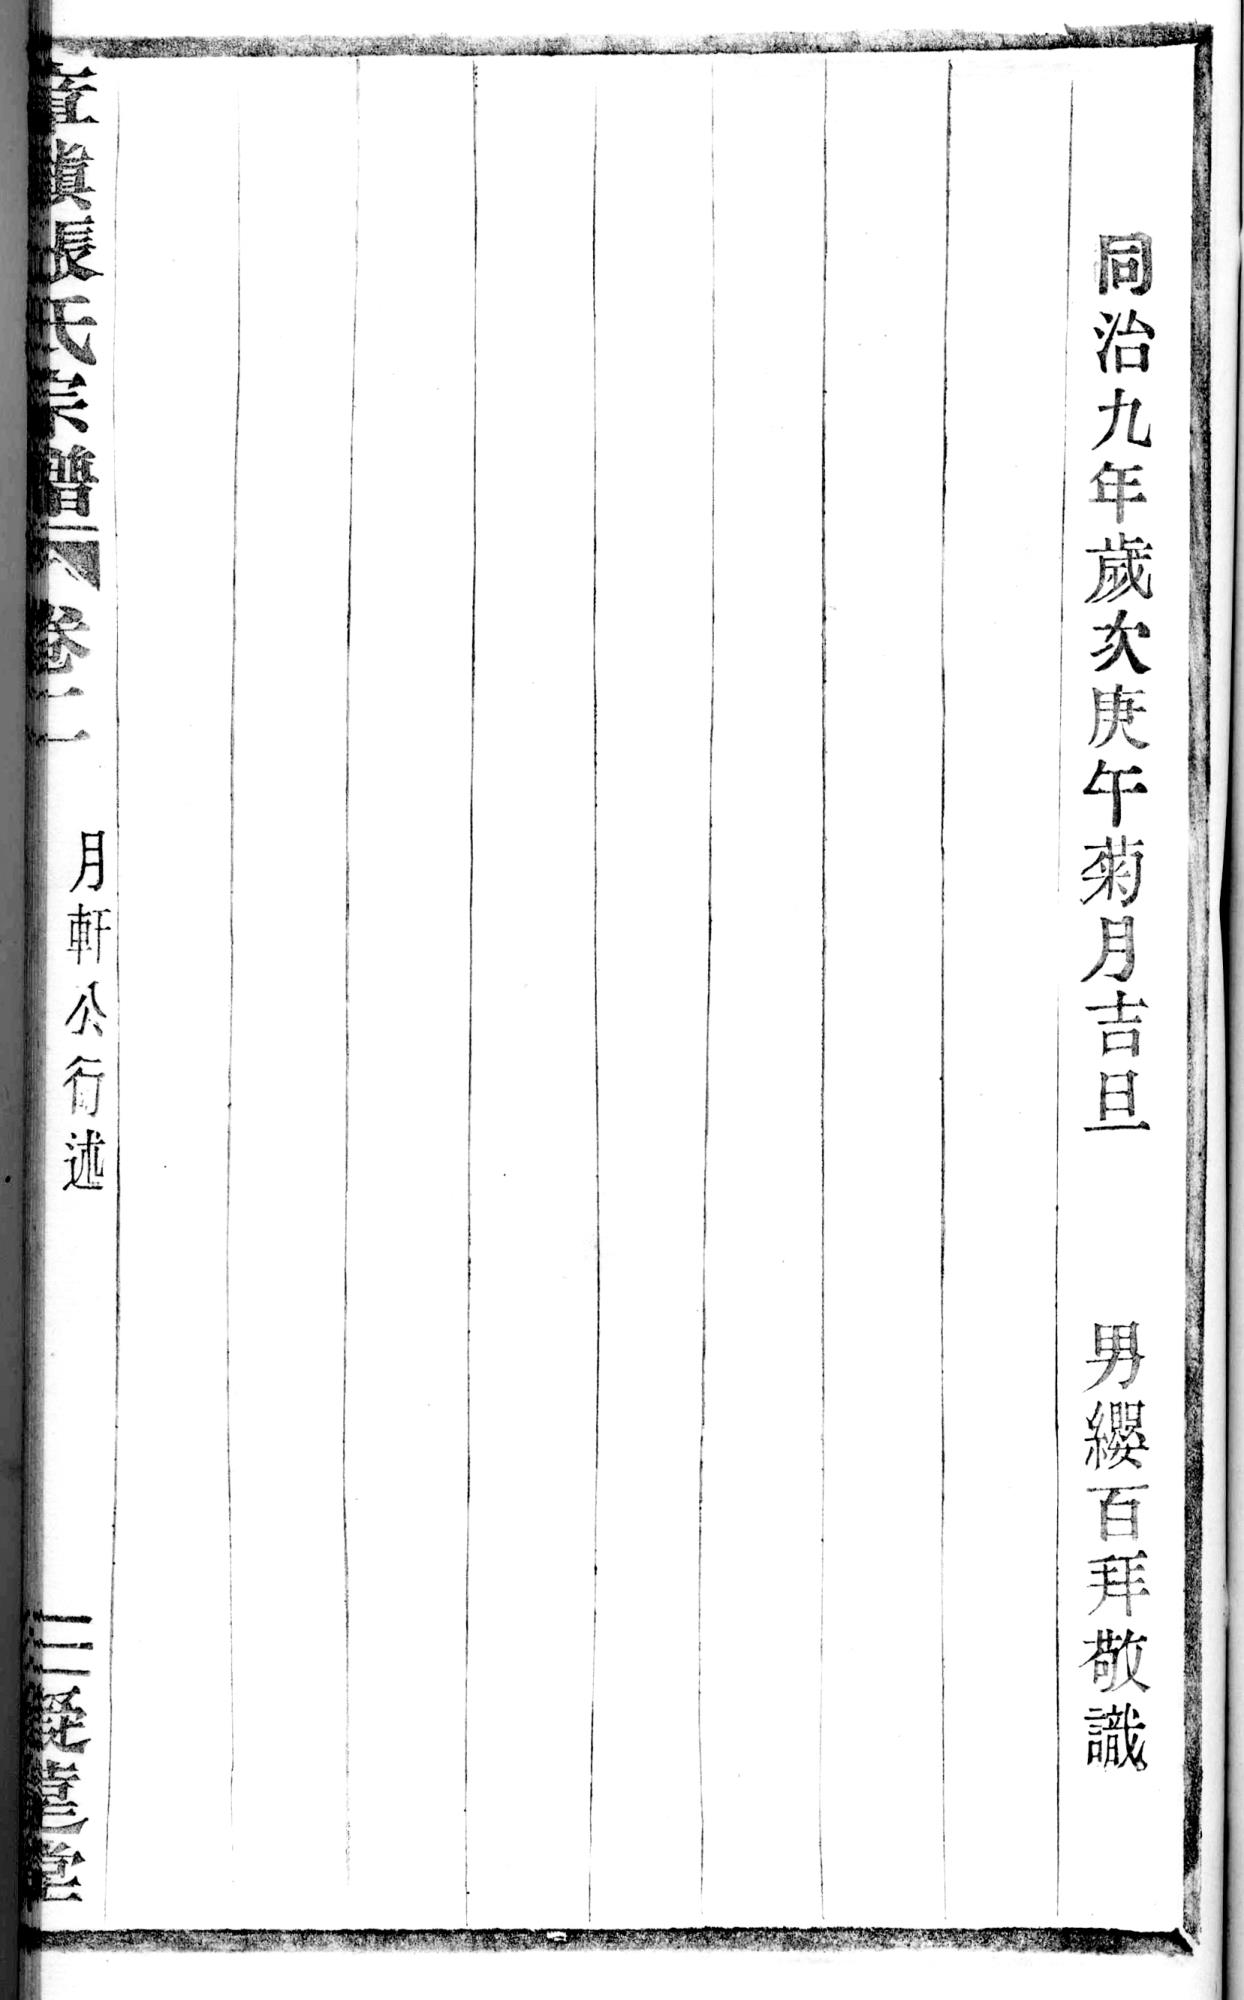 同治九年歲次庚午菊月吉旦　男纓百拜敬識
張氏宗譜　卷二　月軒公行述　三　堂